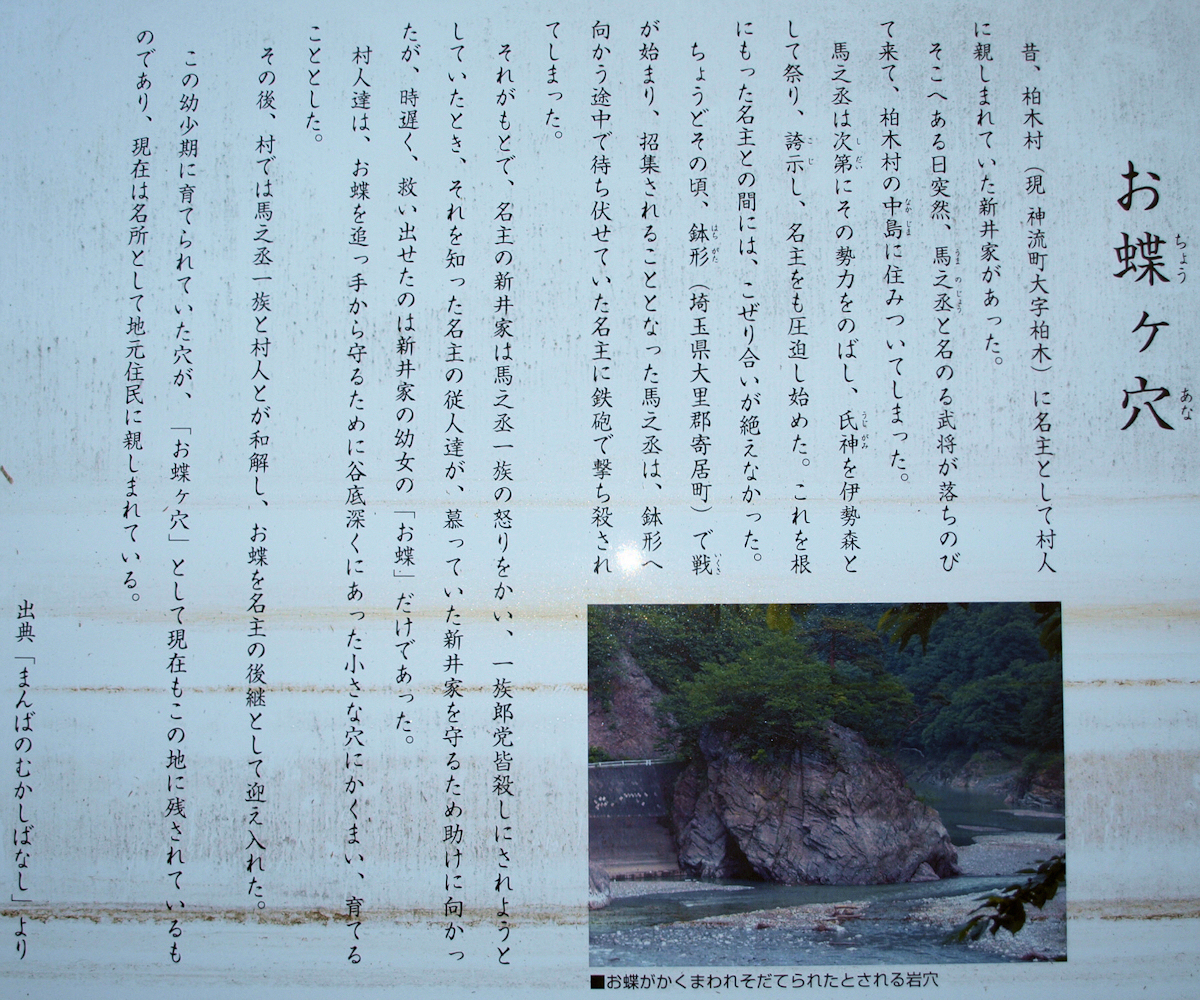 お蝶ヶ穴
昔、柏木村（現 神流町大字柏木）に名主として村人
に親しまれていた新井家があった。
そこへある日突然、馬之丞と名のる武将が落ちのび
て来て、柏木村の中島に住みついてしまった。
馬之丞は次第にその勢力をのばし、氏神を伊勢森と
して祭り、誇示し、名主をも圧迫し始めた。これを根
にもった名主との間には、こぜり合いが絶えなかった。
ちょうどその頃、鉢形（埼玉県大里郡寄居町）で戦
が始まり、招集されることとなった馬之丞は、鉢形へ
向かう途中で待ち伏せていた名主に鉄砲で撃ち殺され
てしまった。
それがもとで、名主の新井家は馬之丞一族の怒りをかい、一族郎党皆殺しにされようと
していたとき、それを知った名主の従人達が、慕っていた新井家を守るため助けに向かっ
たが、時遅く、救い出せたのは新井家の幼女の「お蝶」だけであった。
村人達は、お蝶を追っ手から守るために谷底深くにあった小さな穴にかくまい、育てる
こととした。
その後、村では馬之丞一族と村人とが和解し、お蝶を名主の後継として迎え入れた。
この幼少期に育てられていた穴が、「お蝶ヶ穴」として現在もこの地に残されているも
のであり、現在は名所として地元住民に親しまれている。
出典「まんばのむかしばなし」より
■お蝶がかくまわれそだてられたとされる岩穴